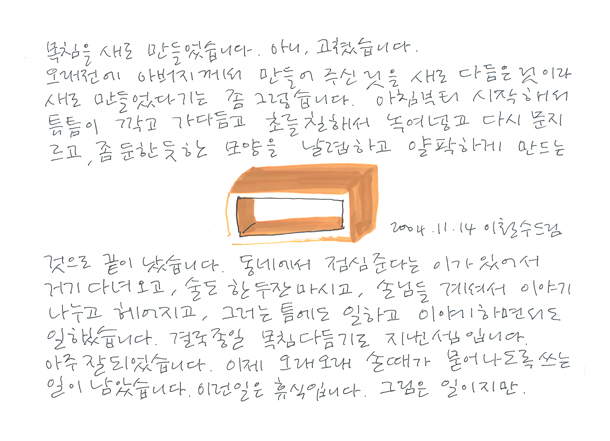 목침을 새로 만들었습니다. 아니, 고쳤습니다.
오래전에 아버지께서 만들어 주신 것을 새로 다듬은 것이라
새로 만들었다기는 좀 그렇습니다. 아침부터 시작해서
틈틈이 깎고 가다듬고 초를 칠해서 녹여넣고 다시 문지
르고, 좀 둔한 듯 하는 모양을 날렵하고 얄팍하게 만드는
2004.11.14 이철수드림
것으로 끝이 났습니다. 동네에서 점심준다는 이가 있어서
거기 다녀오고, 술도 한두잔 마시고, 손님들 계셔서 이야기
나누고 헤어지고, 그러는 틈에도 일하고 이야기하면서도
일했습니다. 결국 종일 목침 다듬기로 지낸 셈입니다.
아주 잘되었습니다. 이제 오래오래 손때가 묻어나도록 쓰는
일이 남았습니다. 이런일은 휴식입니다. 그럼은 일이지만.